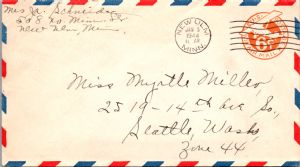 Mrs. A. Schneider
508 No. Minn. St.
New Ulm, Minn.
NEW ULM
JAN 5
1944
MINN.
6
Miss Myrtle Miller
2519-14th Ave So.,
Seattle, Wash,
Zone 44